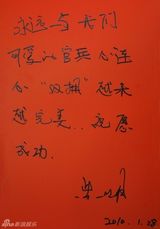 永远与大别
可爱的官兵心连
心“双拥”越来
越完美。祝愿
成功.
2010.1.28